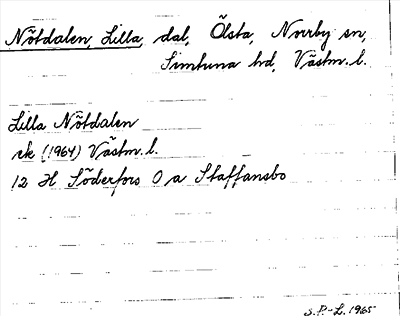 Nötdalen, Lilla, dal, Ölsta, Norrby sn,
Simtuna hd, Västm. l.
Lilla Nötdalen
ek (1964) Västm. l.
12 H Söderfors 0 a Staffansbo
S.P.-L. 1965